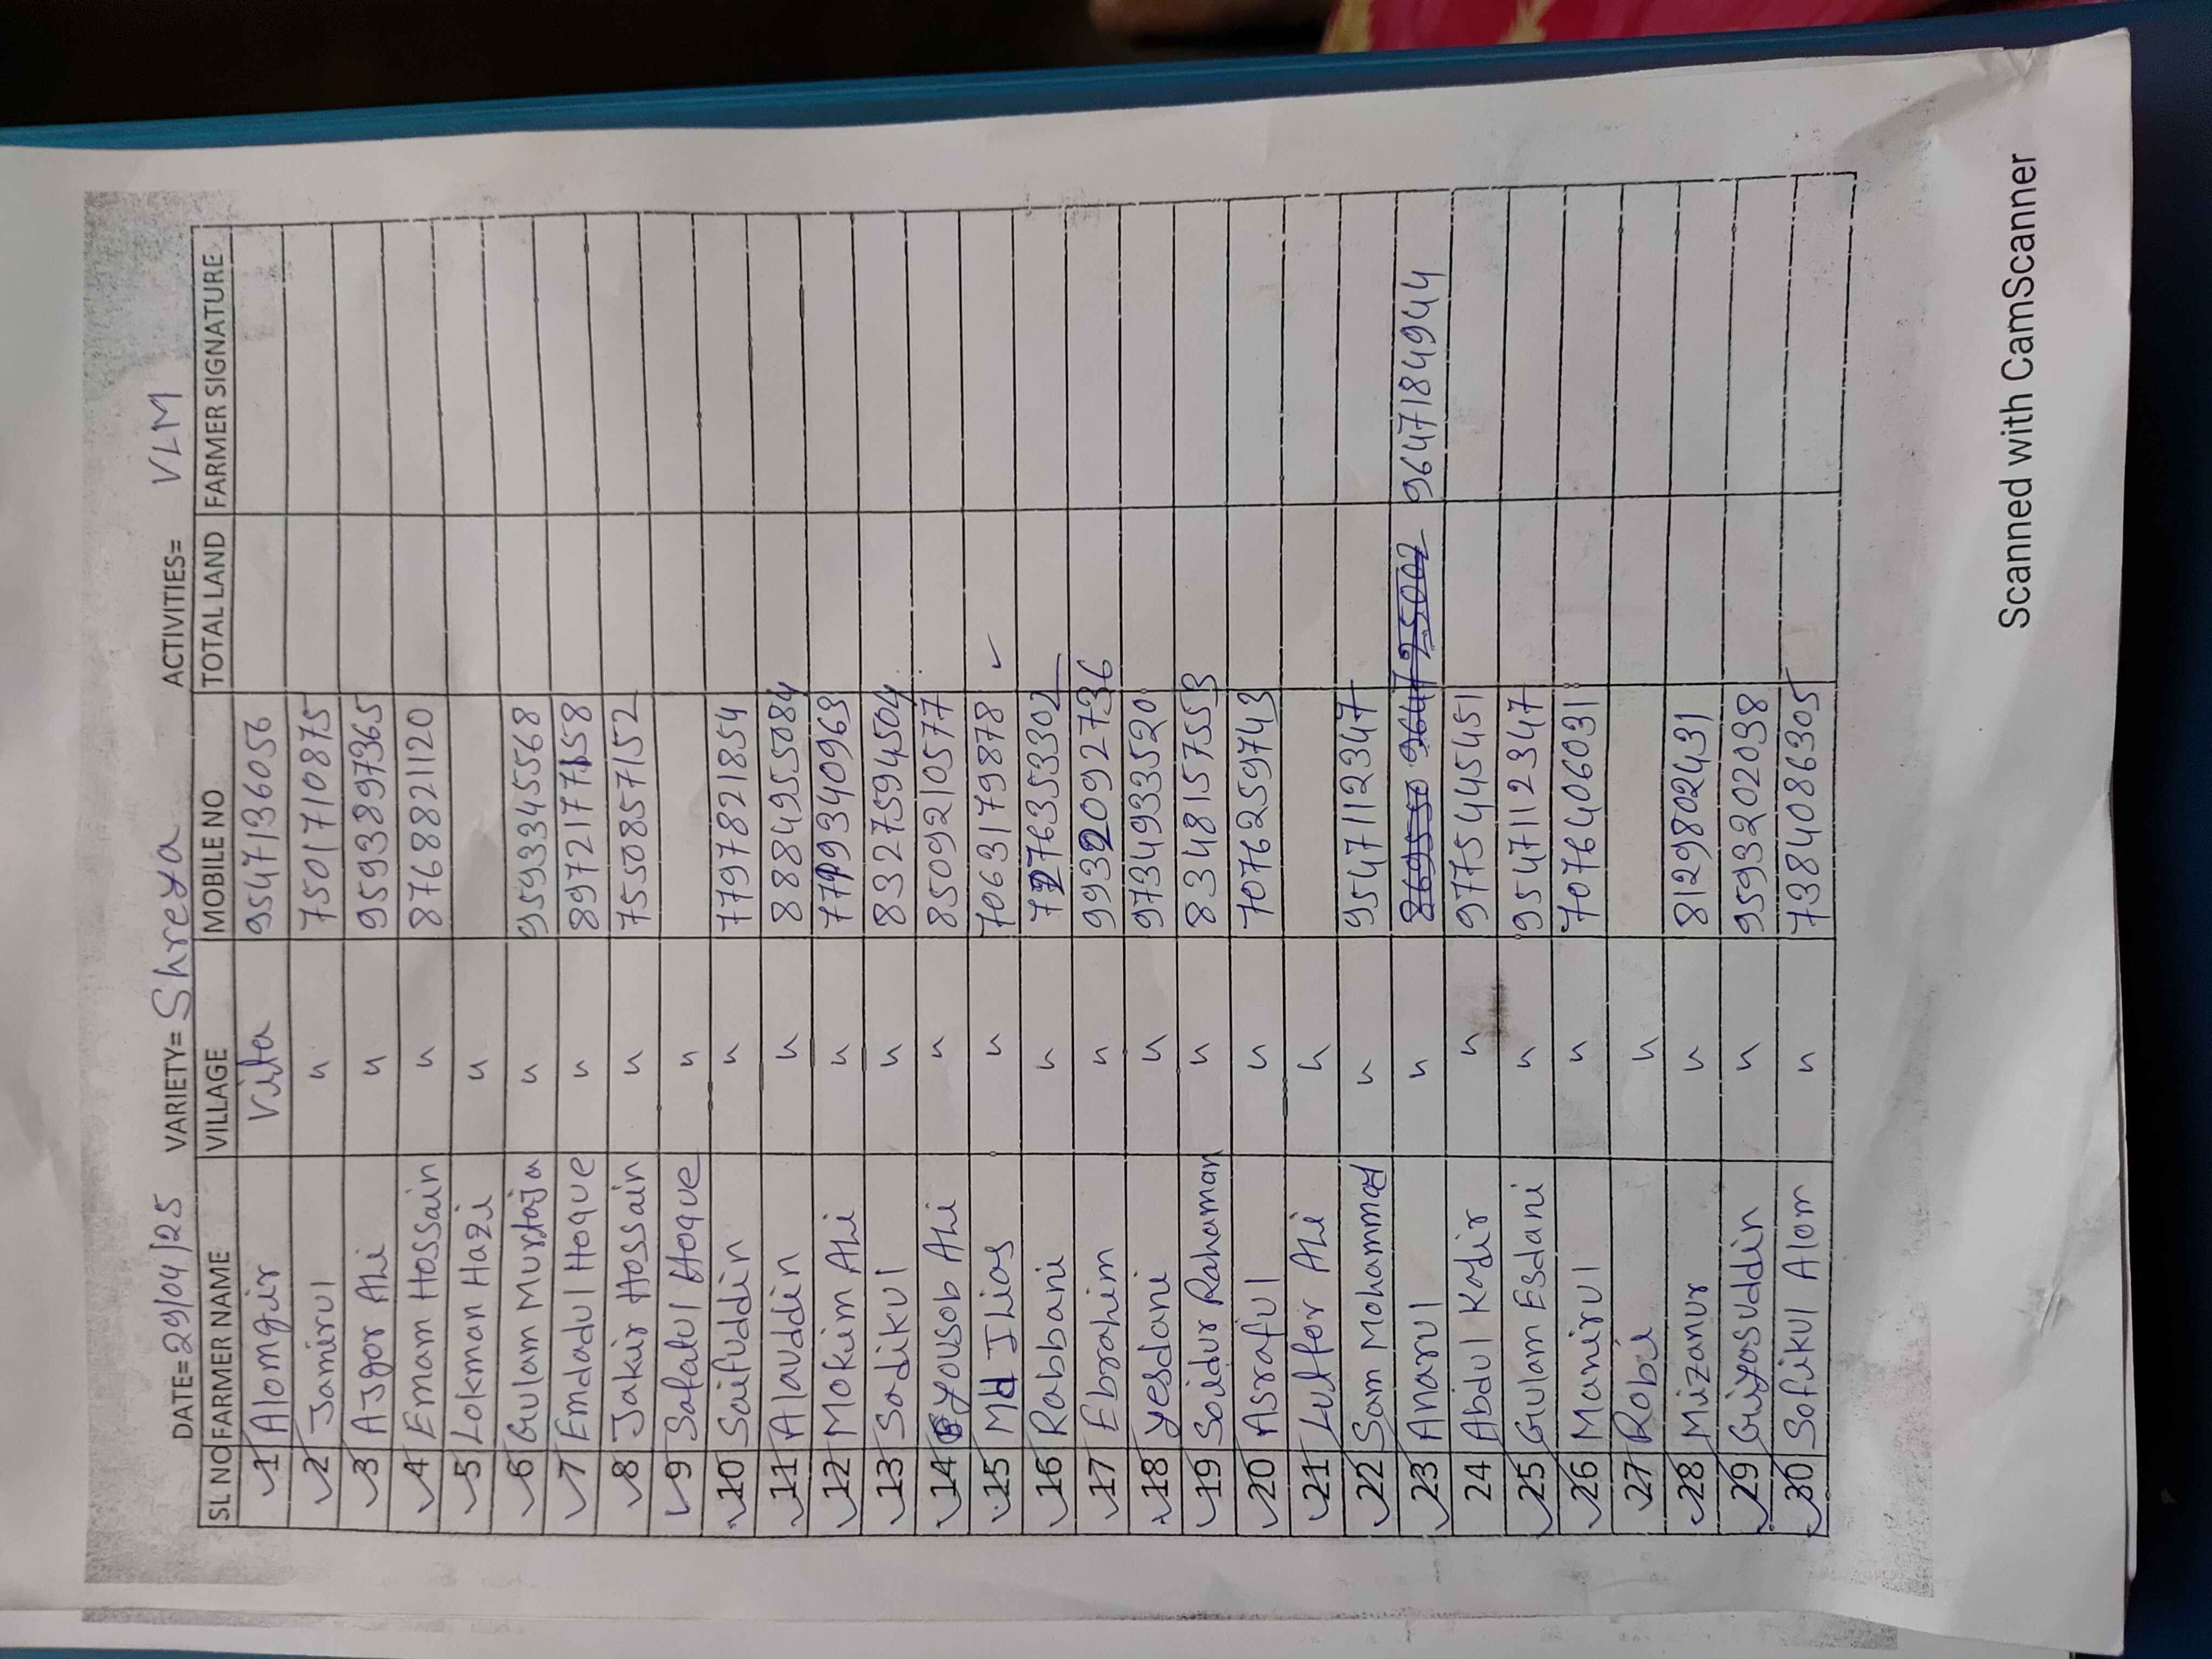 DATE= 29/04/25 VARIETY= Shreya ACTIVITIES= VLM
SL NO FARMER NAME VILLAGE MOBILE NO TOTAL LAND FARMER SIGNATURE
1 Alomgir Vita 9547136056
2 Jamirul " 7501710875
3 AJgor Ali " 9593897365
4 Emam Hossain " 8768821120
5 Lokman Hazi "
6 Gulam Murtaja " 9593345568
7 Emdadul Hoque " 8972177658
8 Jakir Hossain " 7550857152
9 Safatul Hoque "
10 Saifuddin " 7797821854
11 Alauddin " 8849555084
12 Mokim Ali " 7719340963
13 Sadikul " 8327594504
14 Yousob Ali " 8509210577
15 Md Ilias " 7063179878 ✓
16 Rabbani " 7276353302
17 Ebrahim " 9932092736
18 Yesdani " 9734933520
19 Saidur Rahaman " 8348157553
20 Asraful " 7076259743
21 Lutfor Ali "
22 Sam Mohammad " 9547112347
23 Anarul " 9647184944
24 Abdul Kadir " 9775445451
25 Gulam Esdani " 9547112347
26 Manirul " 7076406031
27 Robi "
28 Mizanur " 8129802431
29 Giyasuddin " 9593202038
30 Sofikul Alom " 7384086305
Scanned with CamScanner